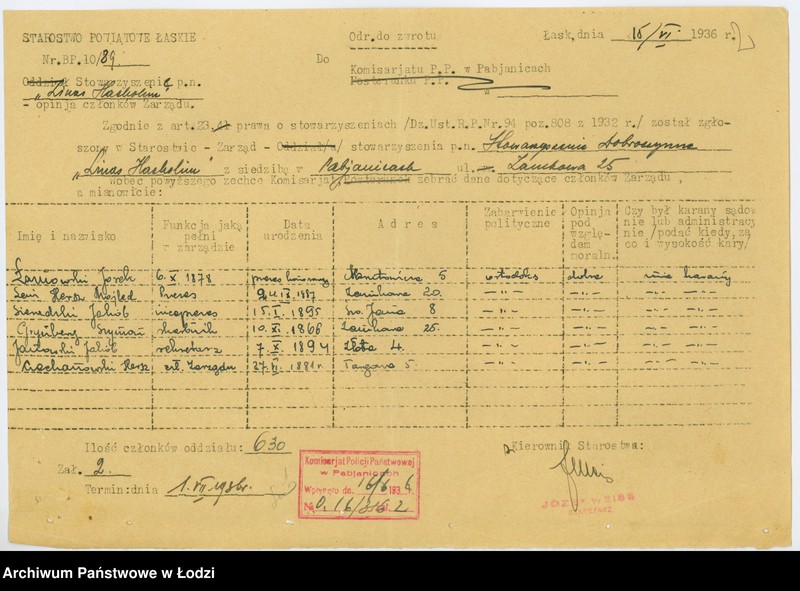 STAROSTWO POWIATOWE ŁASKIE
Odr.do zwrotu
Łask,dnia 15/VI. 1936 r.
Nr.BP.10/89
Do
Oddział Stowarzyszenie p.n.
Komisarjatu P.P. w Pabjanicach
Posterunku P.P.
„Linas Hacholim"
- opinja członków Zarządu.
Zgodnie z art.23,41 prawa o stowarzyszeniach /Dz.Ust.R.P.Nr.94 poz.808 z 1932 r./ został zgło-
szony w Starostwie - Zarząd - Oddział/u/ stowarzyszenia p.n. Stowarzyszenie Dobroczynne
„Linas Hacholim" z siedzibą w Pabjanicach ul. Zamkowa 25
Wobec powyższego zechce Komisarjat, Posterunek zebrać dane dotyczące członków Zarządu,
a mianowicie:
Imię i nazwisko
Funkcja jaką pełni w zarządzie
Data urodzenia
Adres
Zabarwienie polityczne
Opinja pod względem moraln.
Czy był karany sądownie lub administracyjnie /podać kiedy, za co i wysokość kary/
6. X 1878 prezes honorowy 5 ortodoks dobra nie karany
Hersz Prezes 1887 Zamkowa 20. -"- -"- -"-
Sieradzki Jakób wiceprezes 15. I. 1895 Św. Jana 8 -"- -"- -"-
Grynberg Szymon skarbnik 10. XI 1866 Zamkowa 25. -"- -"- -"-
Jakób sekretarz 7. X. 1894 Złota 4. -"- -"- -"-
Ciechanowski Hersz czł. Zarządu 27. 1881r. Targowa 5. -"- -"- -"-
Ilość członków oddziału: 630
Kierownik Starostwa:
Zał. 2.
Termin:dnia 1. VII 1936r.
Komisarjat Policji Państwowej
w Pabjanicach
Wpłynęło dn. 16/6 1936 r.
JÓZEF
SEKRETARZ
Archiwum Państwowe w Łodzi